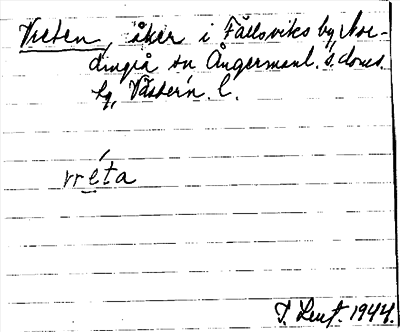 Vreten, åker i Fällsviks by, Nor-
dingrå sn Ångermanl. s. doms.
by, Västern. l.
vréta
T. Lent. 1944.